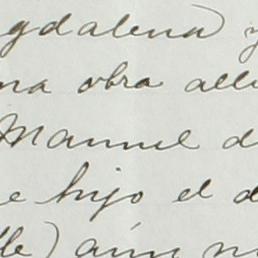 gdalena y
na obra all
Manuel d
e hijo el d
lle) aún n